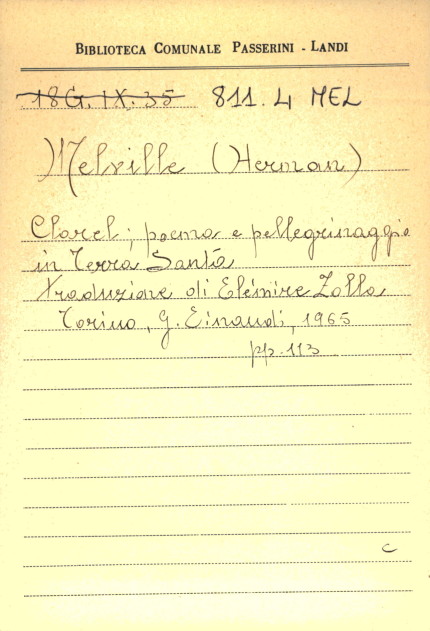 BIBLIOTECA COMUNALE PASSERINI - LANDI
18G.IX.35 811.4 MEL
Melville (Herman)
Clarel; poema e pellegrinaggio
in Terra Santa
traduzione di Elémire Zolla
Torino, G. Einaudi, 1965
pp. 113
c